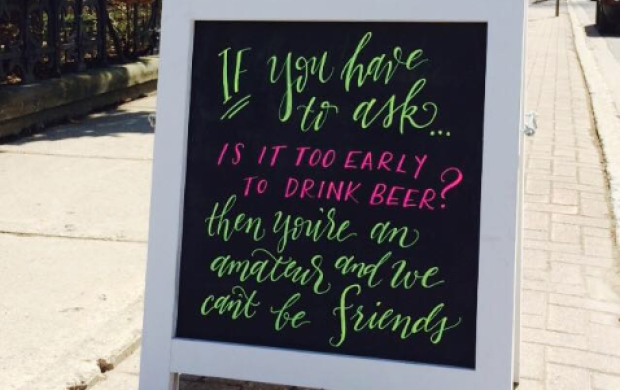 IF you have
to ask...
IS IT TOO EARLY
TO DRINK BEER?
then you're an
amateur and we
can't be friends